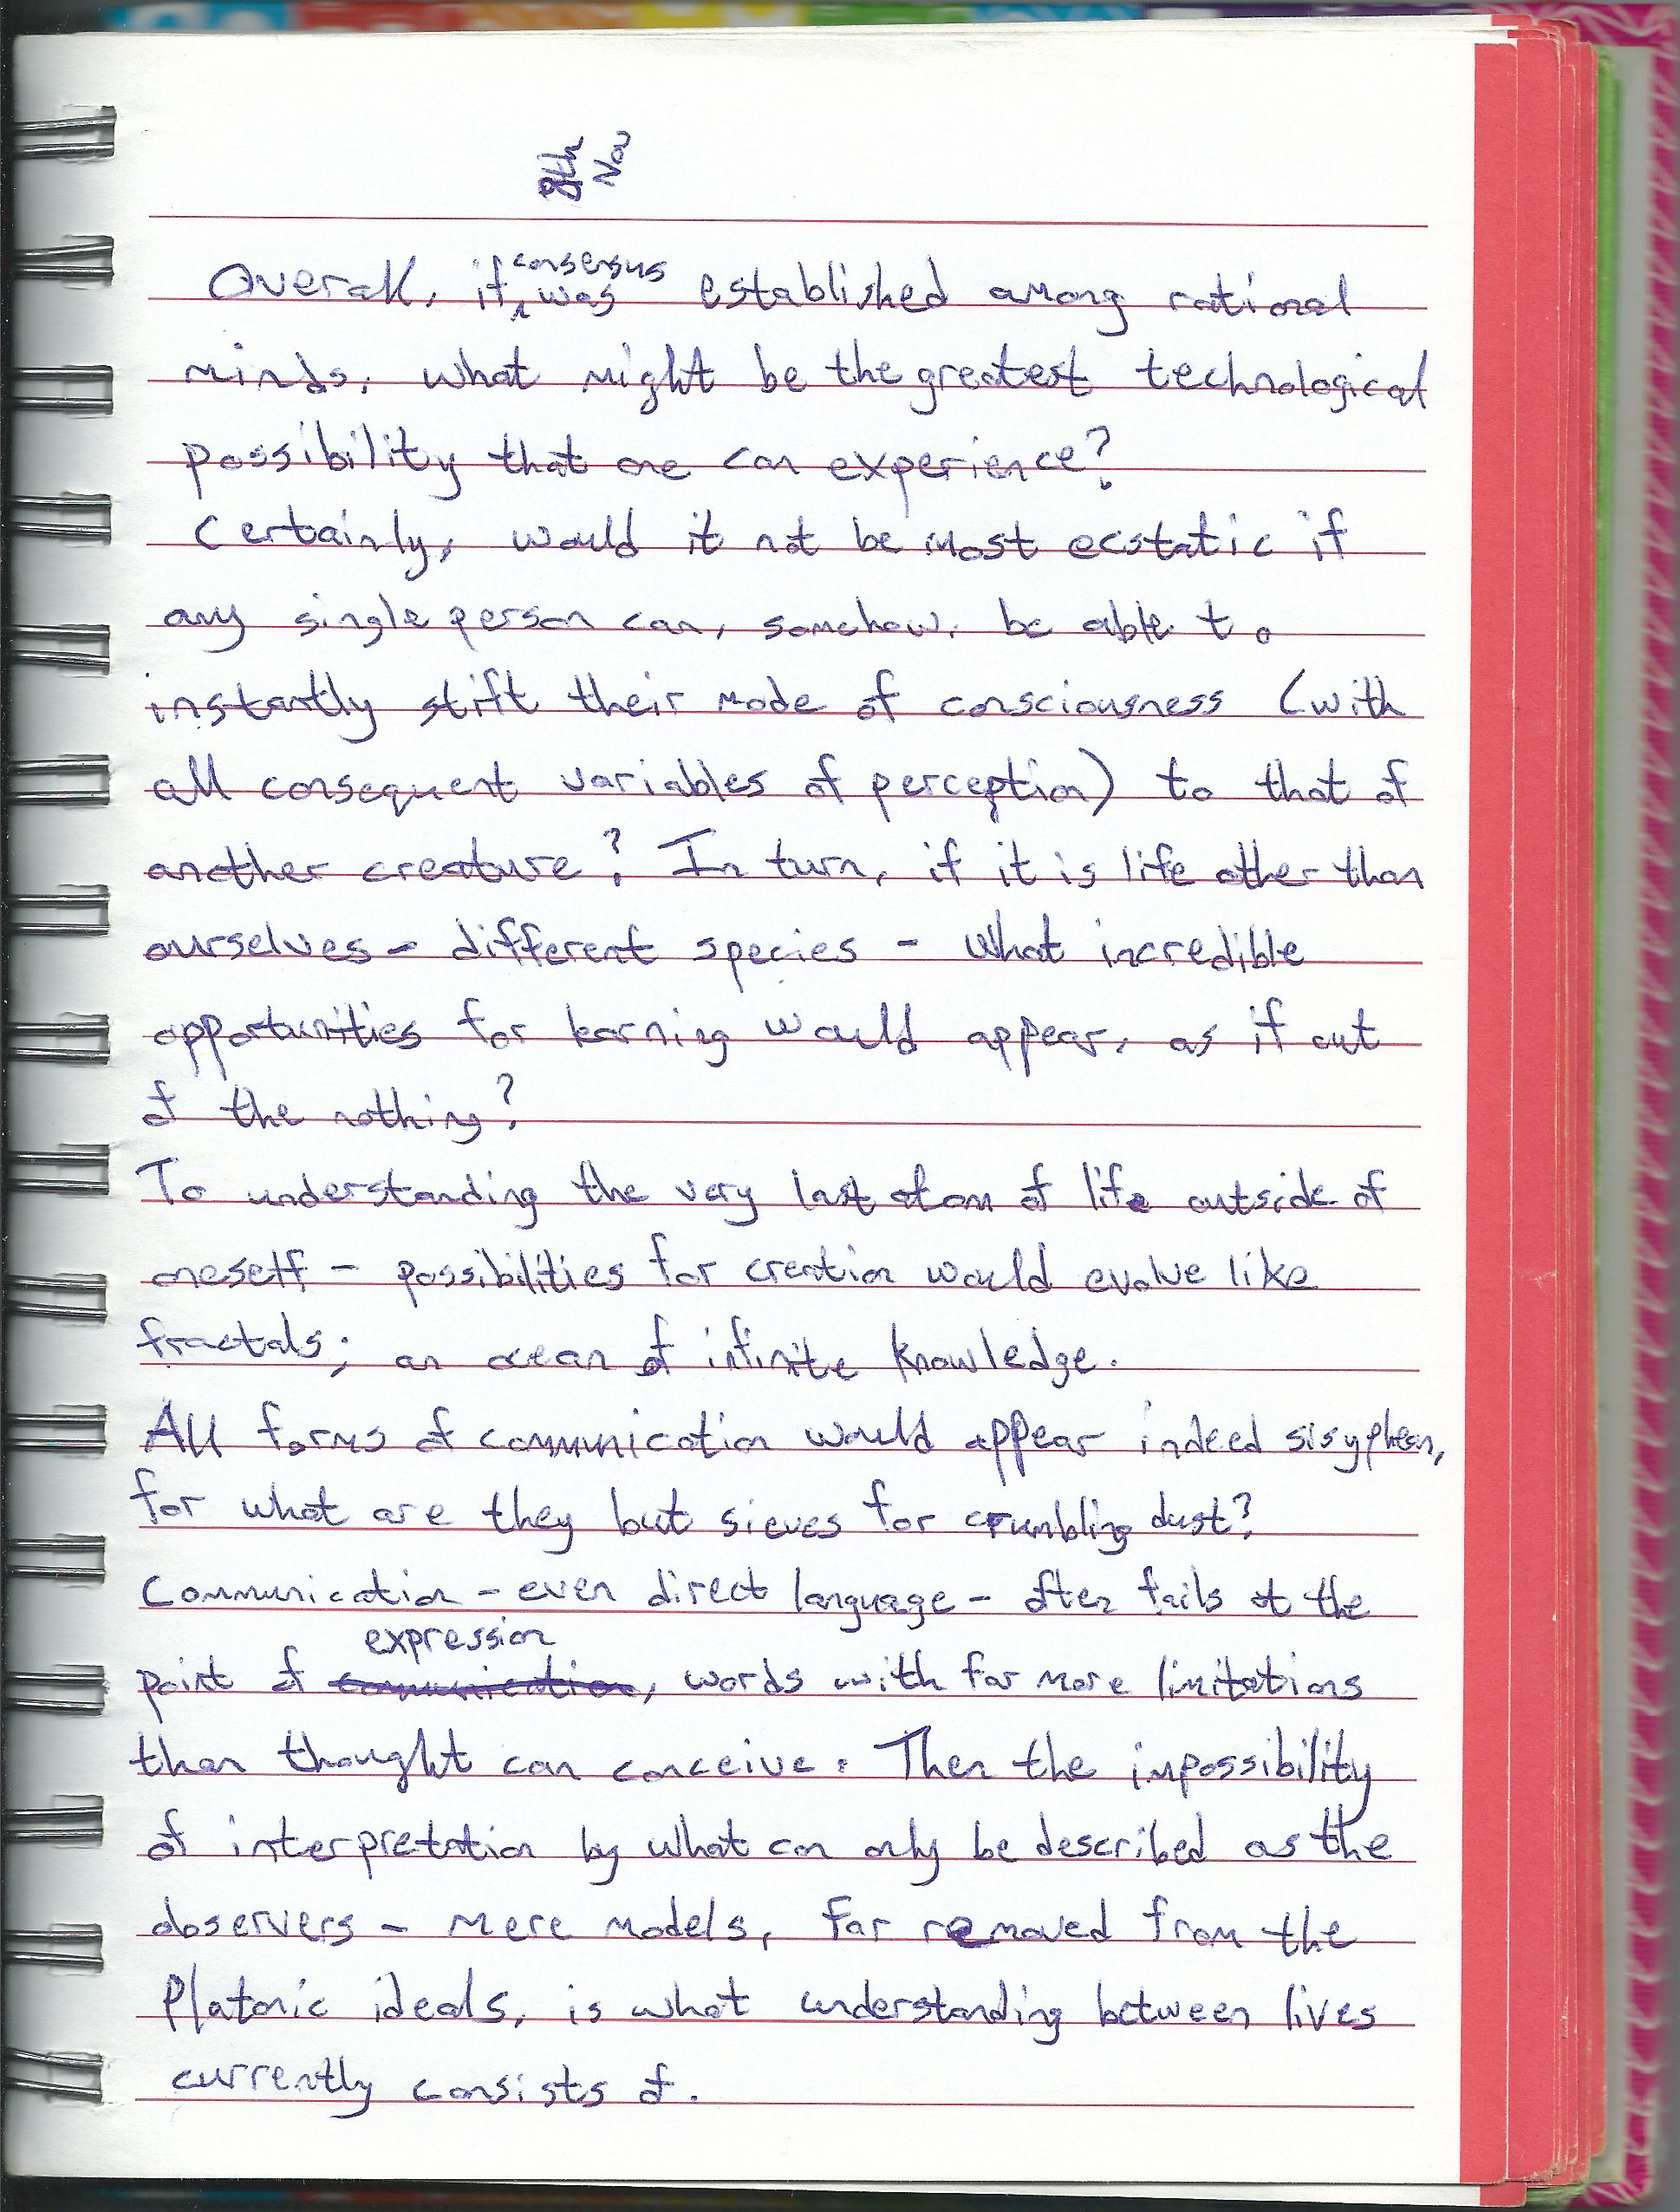 8th
Nov
Overall, if consensus was established among rational
minds, what might be the greatest technological
possibility that one can experience?
Certainly, would it not be most ecstatic if
any single person can, somehow, be able to
instantly stift their mode of consciousness (with
all consequent variables of perception) to that of
another creature? In turn, if it is life other than
ourselves – different species – what incredible
opportunities for learning would appear, as if out
of the nothing?
To understanding the very last atom of life outside of
oneself – possibilities for creation would evolve like
fractals; an ocean of infinite knowledge.
All forms of communication would appear indeed sisyphean,
for what are they but sieves for crumbling dust?
Communication – even direct language – often fails at the
point of communication expression, words with far more limitations
than thought can conceive. Then the impossibility
of interpretation by what can only be described as the
observers – mere models, far removed from the
Platonic ideals, is what understanding between lives
currently consists of.